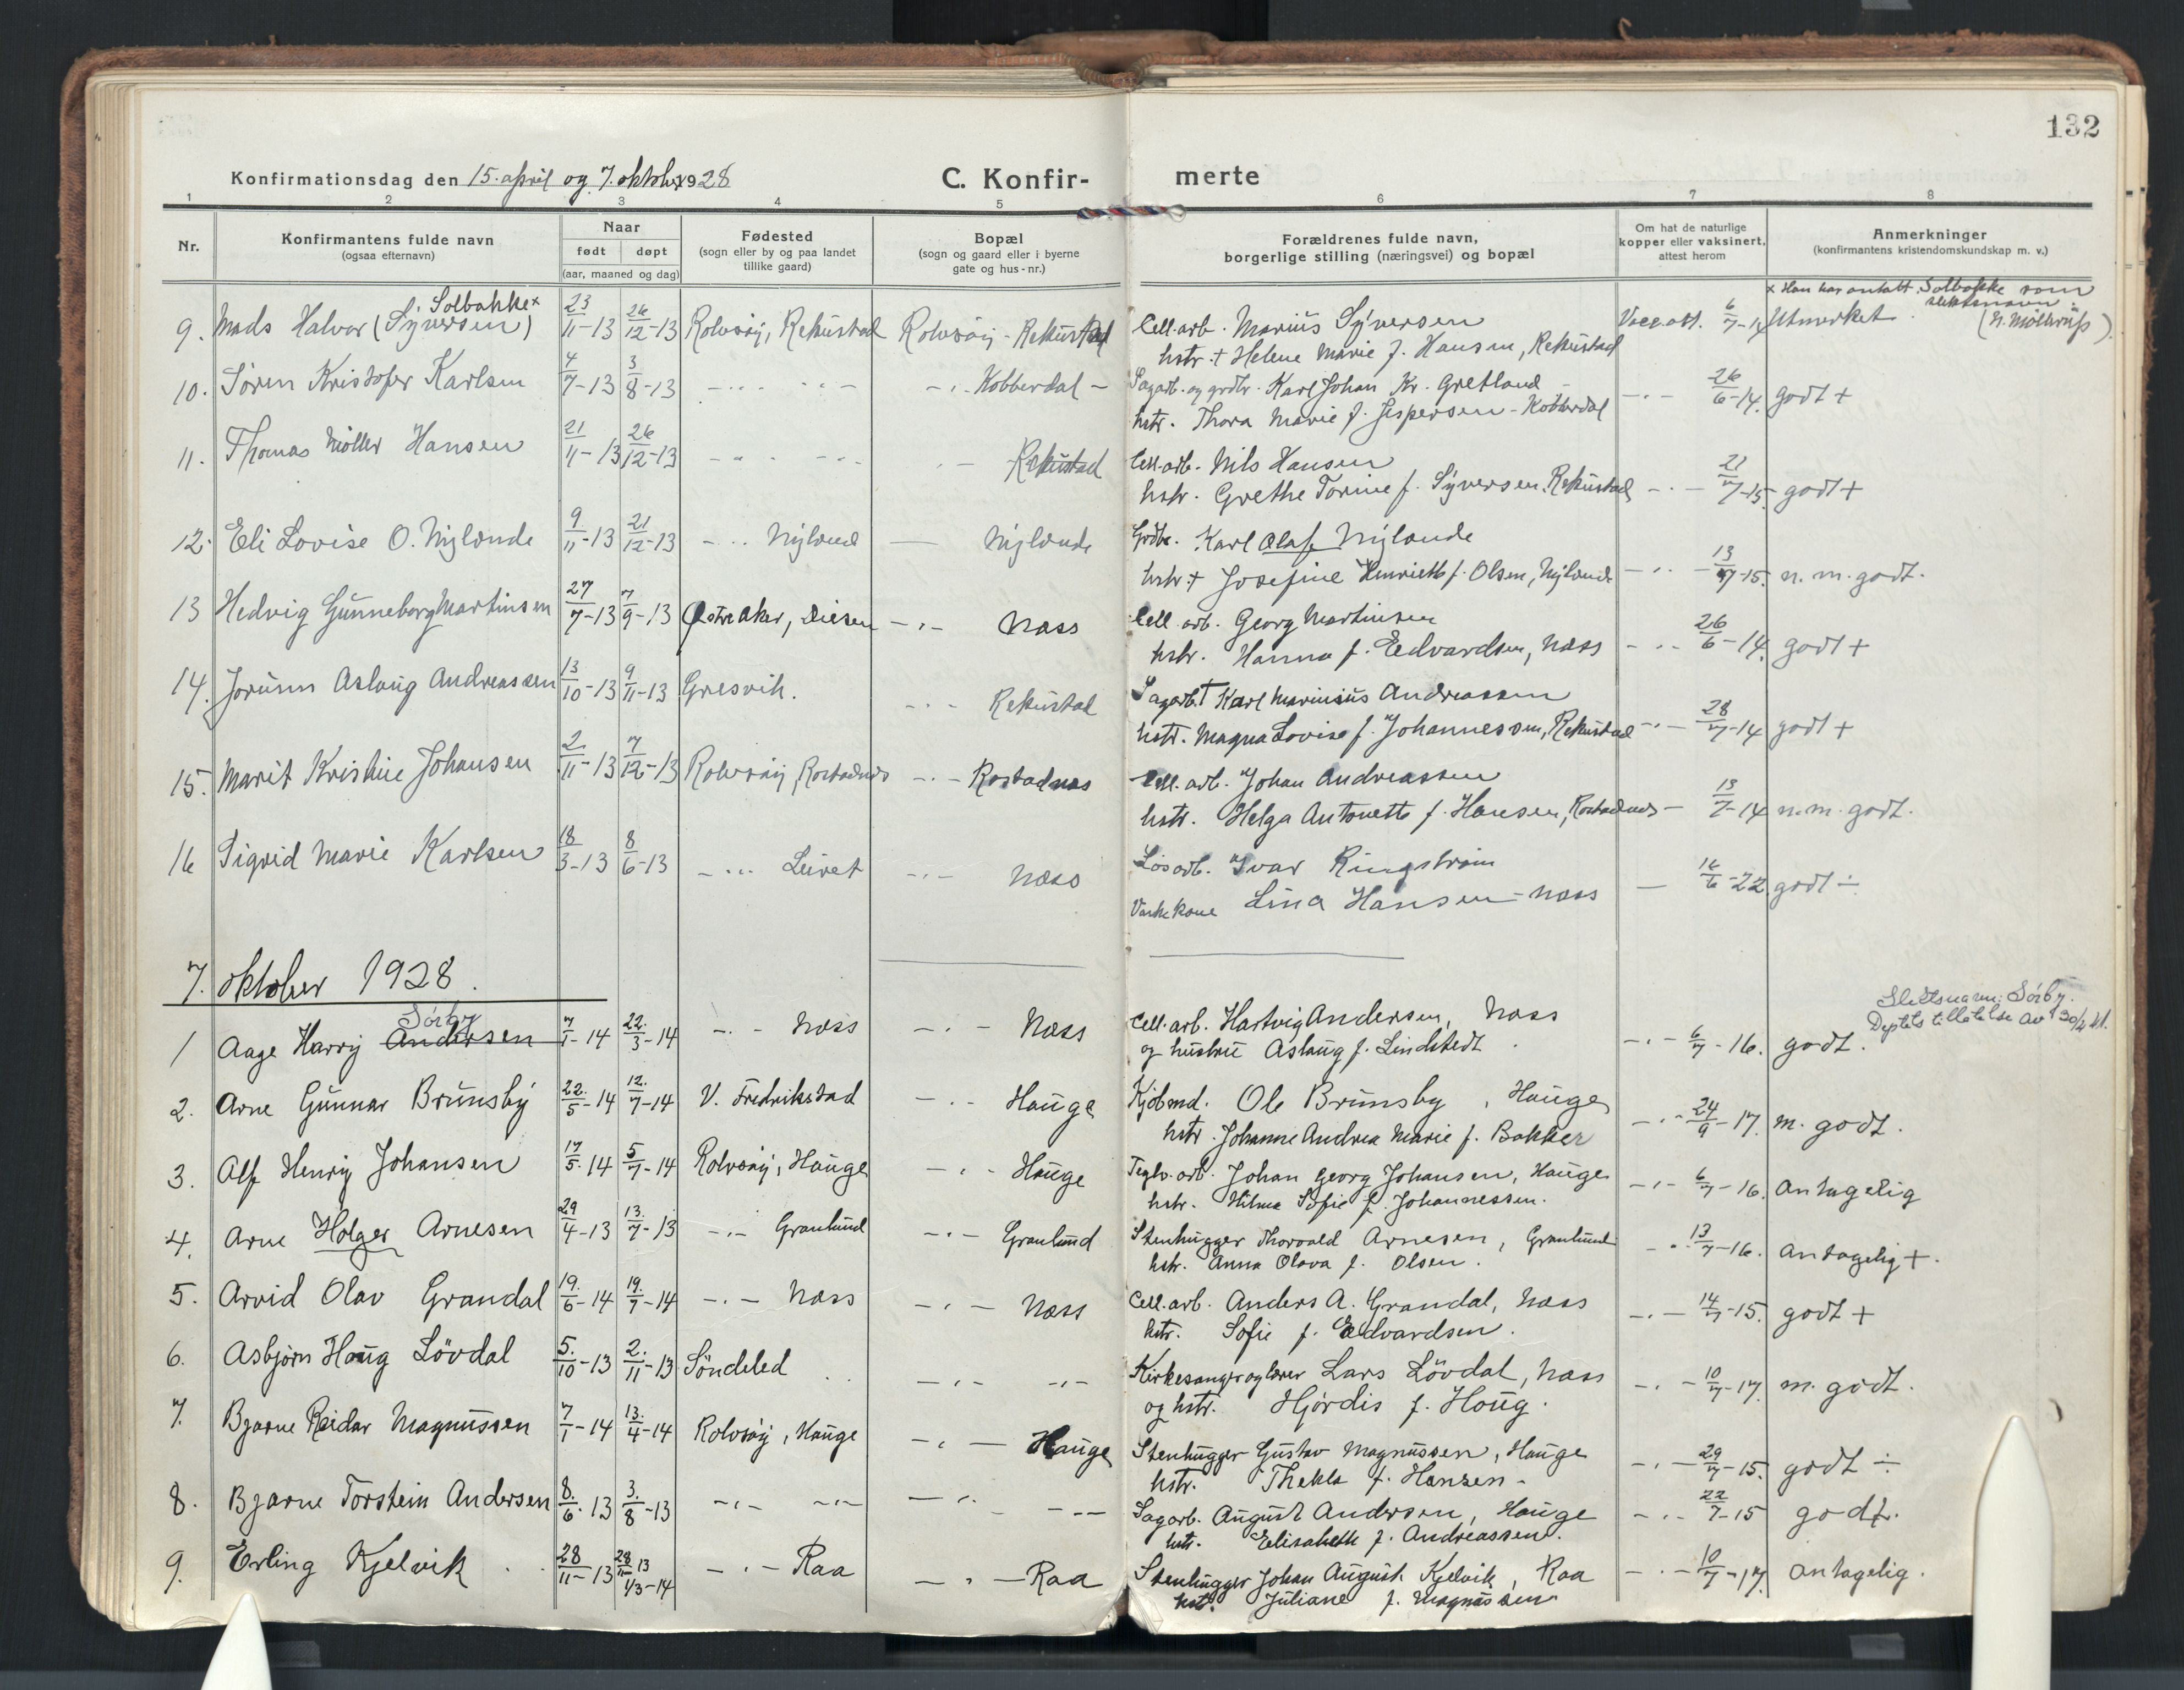 132
Konfirmationsdag den 15. april og 7. oktober 1928
C. Konfir- merte
1 2 3 4 5 6 7 8
Nr.
Konfirmantens fulde navn
(ogsaa efternavn)
Naar
født døpt
(aar, maaned og dag)
Fødested
(sogn eller by og paa landet
tillike gaard)
Bopæl
(sogn og gaard eller i byerne
gate og hus-nr.)
Forældrenes fulde navn,
borgerlige stilling (næringsvei) og bopæl
Om hat de naturlige
kopper eller vaksinert,
attest herom
Anmerkninger
(konfirmantens kristendomskundskap m. v.)
x Han har antatt Solbakke som
slektsnavn
Solbakke x
9. Mads Halvor (Syversen) 23/11-13 26/12-13 Rolvsøy, Rekustad Rolvsøy - Rekustad Cell.arb. Marius Syversen Vacc.att. Utmerket
hstr. + Helene Marie f. Hansen, Rekustad
10. Søren Kristofer Karlsen 4/7-13 3/8-13 -"- -"- -"- Kobberdal - Sagarb. og grdbr. Karl Johan Kr. Gretland -"- 26/6-14. godt +
hstr. Thora Marie f. Jespersen - Kobberdal
11. Thomas Møller Hansen 21/11-13 26/12-13 -"- -"- -"- Rekustad Cell.arb. Nils Hansen
hstr. Grethe Torine f. Syversen, Rekustad -"- 21/7-15 godt +
12. Eli Lovise O. Nylande 9/11-13 21/12-13 -"- Nyland — Nylande Grdbr. Karl Olaf Nylande
hstr. + Josefine Henriette f. Olsen, Nylande -"- 13/7-15. n. m. godt.
13 Hedvig Gunneborg Martinsen 27/7-13 7/9-13 Østre Aker, Diesen -"- Næss Cell. arb. Georg Martinsen
hstr. Hanna f. Edvardsen, Næss -"- 26/6-14. godt +
14. Jorunn Aslaug Andreassen 13/10-13 9/11-13 Gresvik. -"- Rekustad Sagarb. + Karl Marinius Andreassen
hstr. Magna Lovise f. Johannessen, Rekustad -"- 28/7-14 godt +
15. Marit Kristine Johansen 2/11-13 7/12-13 Rolvsøy, Rostadnæs -"- Rostadnæs Cell. arb. Johan Andreassen
hstr. Helga Antonette f. Hansen, Rostadnæs - 13/7-14 n. m. godt.
16 Sigrid Marie Karlsen 18/3-13 8/6-13 -"- Leiret -"- Næss Løsarb. Ivar Ringstrøm
Vaskekone Lina Hansen - Næss — 16/6-22 godt ÷
7. oktober 1928.
Sørby Slektsnavn: Sørby.
Deptets tillatelse av 30/4 41.
1 Aage Harry Andersen 7/1-14 22/3-14 -"- Næss -"- Næss Cell. arb. Hartvig Andersen, Næss -"- 6/7-16. godt.
og hustru Aslaug f. Lindstedt.
2. Arne Gunnar Brunsby 22/5-14 12/7-14 V. Fredrikstad -"- Hauge Kjøbmd. Ole Brunsby, Hauge -"- 24/9-17. m. godt.
hstr. Johanne Andrea Marie f. Bakker
3. Alf Henry Johansen 17/5-14 5/7-14 Rolvsøy, Hauge -"- Hauge Teglv.arb. Johan Georg Johansen, Hauge -"- 6/7-16. antagelig
hstr. Hilma Sofie f. Johannessen.
4. Arne Holger Arnesen 29/4-13 13/7-13 -"- Granlund -"- Granlund Stenhugger Thorvald Arnesen, Granlund -"- 13/7-16. antagelig +.
hstr. Anna Olava f. Olsen.
5. Arvid Olav Grandal 19/6-14 19/7-14 -"- Næss -"- Næss Cell. arb. Anders A. Grandal, Næss -"- 14/7-15. godt +
hstr. Sofie f. Edvardsen.
6. Asbjørn Haug Løvdal 5/10-13 2/11-13 Søndeled -"- -"- Kirkesanger og lærer Lars Løvdal, Næss -"- 10/7-17. m. godt.
og hstr. Hjørdis f. Haug.
7. Bjarne Reidar Magnussen 7/1-14 13/4-14 Rolvsøy, Hauge -"- Hauge Stenhugger Gustav Magnussen, Hauge -"- 29/7-15. godt ÷
hstr. Thekla f. Hansen -
8. Bjarne Torstein Andersen 8/6-13 3/8-13 -"- -"- -"- -"- Sagarb. August Andersen, Hauge -"- 22/7-15 godt.
hstr. Elisabeth f. Andreassen.
9. Erling Kjelvik 28/11-13 28/11 13 1/3-14 -"- Raa -"- Raa Stenhugger Johan August Kjelvik, Raa -"- 10/7-17. antagelig.
hstr. Juliane f. Magnussen